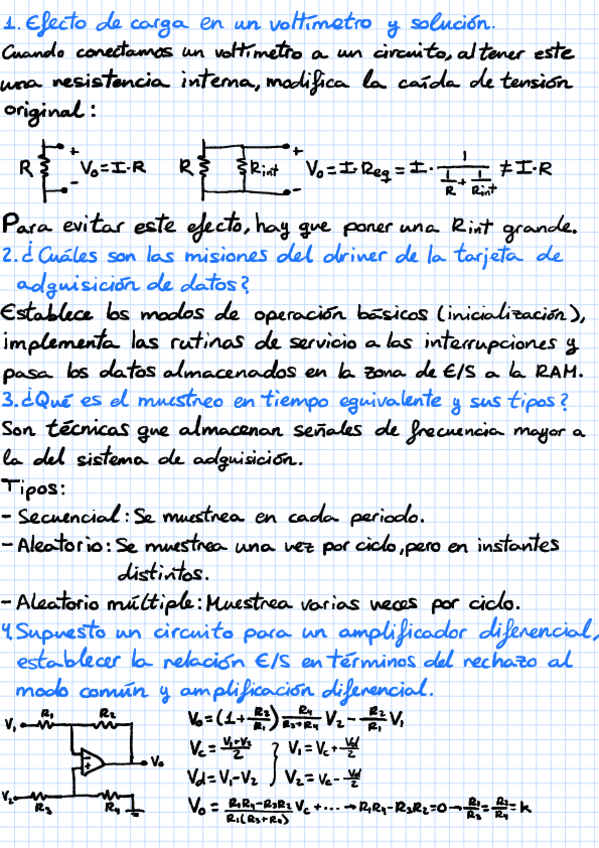 1. Efecto de carga en un voltímetro y solución.
Cuando conectamos un voltímetro a un circuito, al tener este
una resistencia interna, modifica la caída de tensión
original:
R + - V₀=I·R R Rint + - V₀=I·Req=I·1/(1/R+1/Rint)≠I·R
Para evitar este efecto, hay que poner una Rint grande.
2. ¿Cuáles son las misiones del driver de la tarjeta de
adquisición de datos?
Establece los modos de operación básicos (inicialización),
implementa las rutinas de servicio a las interrupciones y
pasa los datos almacenados en la zona de E/S a la RAM.
3. ¿Qué es el muestreo en tiempo equivalente y sus tipos?
Son técnicas que almacenan señales de frecuencia mayor a
la del sistema de adquisición.
Tipos:
- Secuencial: Se muestrea en cada periodo.
- Aleatorio: Se muestrea una vez por ciclo, pero en instantes
distintos.
- Aleatorio múltiple: Muestrea varias veces por ciclo.
4. Supuesto un circuito para un amplificador diferencial,
establecer la relación E/S en términos del rechazo al
modo común y amplificación diferencial.
V₁ R₁ R₂ - + V₀ V₂ R₃ R₄
V₀=(1+R₂/R₁) R₄/(R₃+R₄) V₂-R₂/R₁ V₁
Vc=(V₁+V₂)/2 } V₁=Vc+Vd/2
Vd=V₁-V₂ } V₂=Vc-Vd/2
V₀=(R₁R₄-R₃R₂)/(R₁(R₃+R₄)) Vc+···→R₁R₄-R₃R₂=0→R₁/R₃=R₂/R₄=k